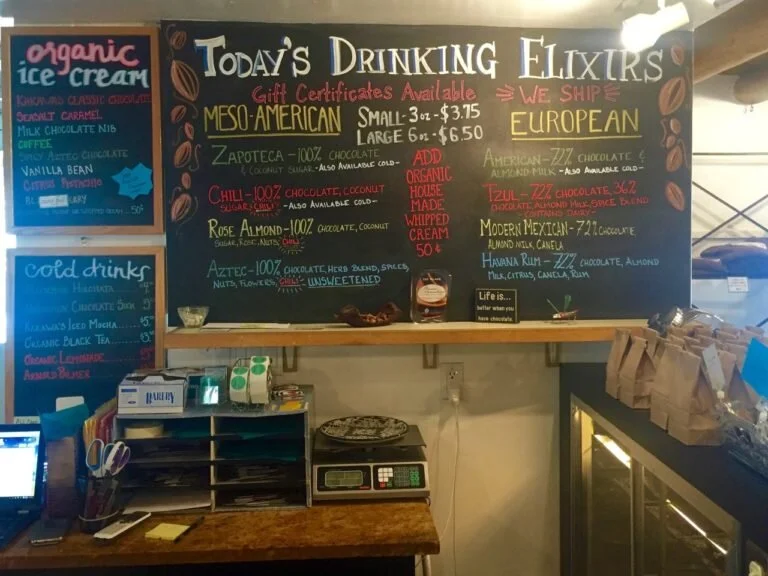 organic
ice cream
KAKAWA CLASSIC CHOCOLATE
SEASALT CARAMEL
MILK CHOCOLATE NIB
COFFEE
SPICY AZTEC CHOCOLATE
VANILLA BEAN
CITRUS PISTACHIO
50¢
cold drinks
HORCHATA
CHOCOLATE
KAKAWA'S ICED MOCHA
ORGANIC BLACK TEA
ORGANIC LEMONADE
ARNOLD PALMER
TODAY'S DRINKING ELIXIRS
Gift Certificates Available
WE SHIP
MESO-AMERICAN
SMALL-3oz-$3.75
LARGE 6oz-$6.50
ZAPOTECA-100% CHOCOLATE
& COCONUT SUGAR -ALSO AVAILABLE COLD-
CHILI-100% CHOCOLATE, COCONUT
SUGAR, CHILI -ALSO AVAILABLE COLD-
ROSE ALMOND-100% CHOCOLATE, COCONUT
SUGAR, ROSE, NUTS, CHILI
AZTEC-100% CHOCOLATE, HERB BLEND, SPICES,
NUTS, FLOWERS, CHILI - UNSWEETENED
ADD
ORGANIC
HOUSE
MADE
WHIPPED
CREAM
50¢
EUROPEAN
AMERICAN-72% CHOCOLATE &
ALMOND MILK -ALSO AVAILABLE COLD-
TZUL-72% CHOCOLATE, 36%
CHOCOLATE, ALMOND MILK, SPICE BLEND
-CONTAINS DAIRY-
MODERN MEXICAN-72% CHOCOLATE,
ALMOND MILK, CANELA
HAVANA RUM-72% CHOCOLATE, ALMOND
MILK, CITRUS, CANELA, RUM
Life is...
better when you
have chocolate.
BAKERY